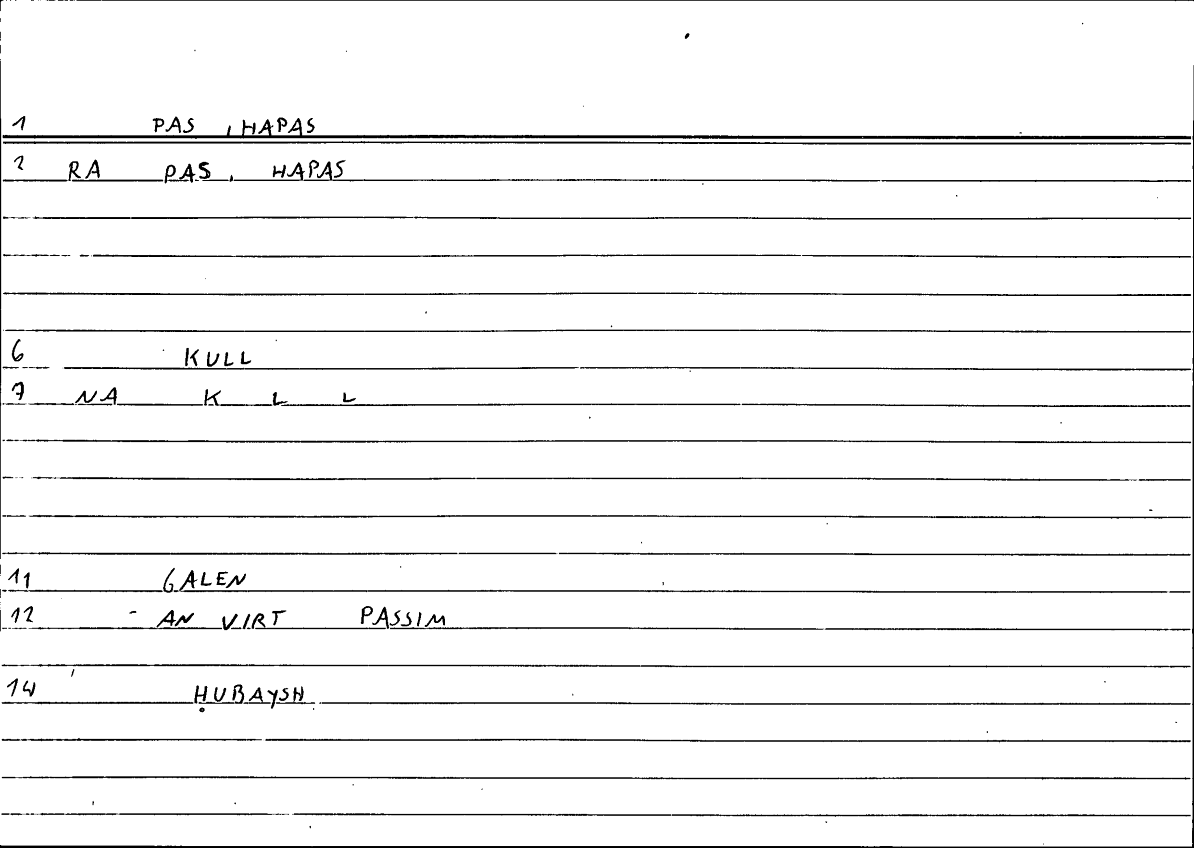 1 PAS , HAPAS
2 RA PAS, HAPAS
6 KULL
7 NA K L L
11 GALEN
12 - AN VIRT PASSIM
14 ḤUBAYSH